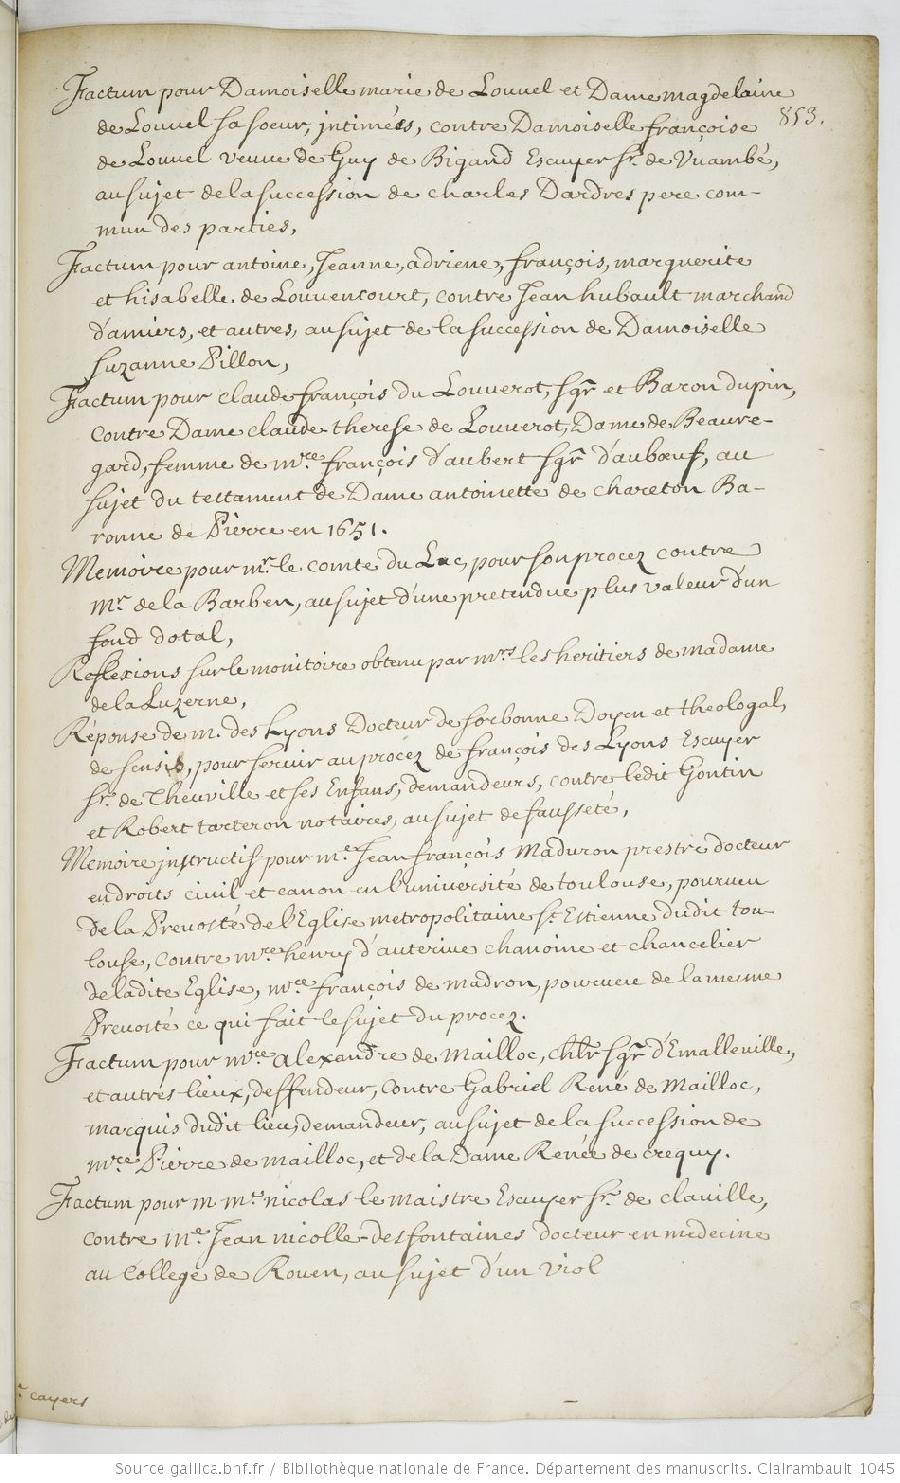 Factum pour Damoiselle marie de Louuel et Dame magdelaine
853.
de Louuel sa soeur, jntimées, contre Damoiselle françoise
de Louuel veuue de Guy de Bigand Escuyer Sr. de Vuambé,
au sujet de la succession de charles Dardres pere com-
mun des parties,
Factum pour antoine, Jeanne, adriene, françois, marguerite
et hisabelle de Louuencourt, contre Jean hubault marchand
d'amiens, et autres, au sujet de la succession de Damoiselle
Suzanne Pillon,
Factum pour claude françois du Louuerot, Sgr et Baron dupin,
contre Dame claude therese de Louuerot, Dame de Beaure-
gard, femme de mre françois d'aubert Sgr d'aubœuf, au
sujet du testament de Dame antoinette de chareton Ba-
ronne de Pierre en 1651.
Memoire pour mr. le comte du Luc, pour son procez contre
Mr de la Barben, au sujet d'une pretendue plus valeur d'un
fond dotal,
Reflexions sur le monitoire obtenu par mrs les heritiers de madame
de la Luzerne,
Réponse de m. des Lyons Docteur de sorbonne Doyen et theologal,
de senlis, pour seruir au procez de françois des Lyons Escuyer
Sr. de Theuville et ses Enfans, demandeurs, contre ledit Gontin
et Robert tarteron notaires, au sujet de fausseté,
Memoire jnstructif pour me. Jean françois Maduron prestre docteur
en droits civil et canon en l'université de toulouse, pourueu
de la Preuosté de l'Eglise metropolitaine St. Estienne dudit tou-
louse, contre mre henry d'auteriue chanoine et chancelier
de ladite Eglise, mre françois de madron, pourueu de la mesme
Preuosté ce qui fait le sujet du procez.
Factum pour mre alexandre de mailloc, chlr Sgr d'Emalleuille,
et autres lieux, deffendeur, contre Gabriel René de Mailloc,
marquis dudit lieu, demandeur, au sujet de la succession de
mre Pierre de mailloc, et de la Dame Renée de crequy.
Factum pour m me nicolas le maistre Escuyer Sr. de claville,
contre me Jean nicolle desfontaines docteur en medecine
au College de Rouen, au sujet d'un viol
cayers
Source gallica.bnf.fr / Bibliothèque nationale de France. Département des manuscrits. Clairambault 1045